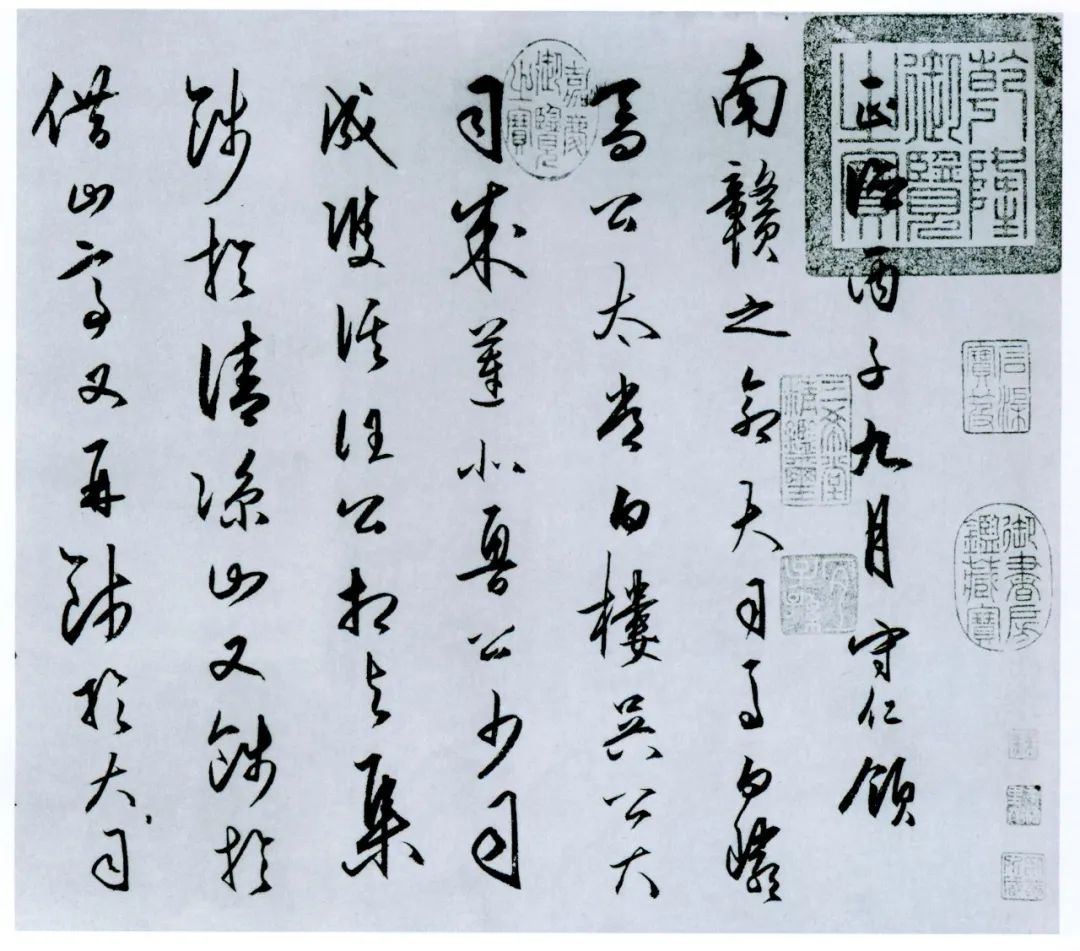 正德丙子九月守仁領
南贛之命大司馬白巖
喬公太常白樓吳公大
司成蓮北魯公少司
成雙溪汪公相與集
餞於清涼山又餞於
借山亭又再餞於大司
乾隆御覽之寶
石渠寶笈
御書房鑑藏寶
三希堂精鑑璽
宜子孫
嘉慶御覽之寶